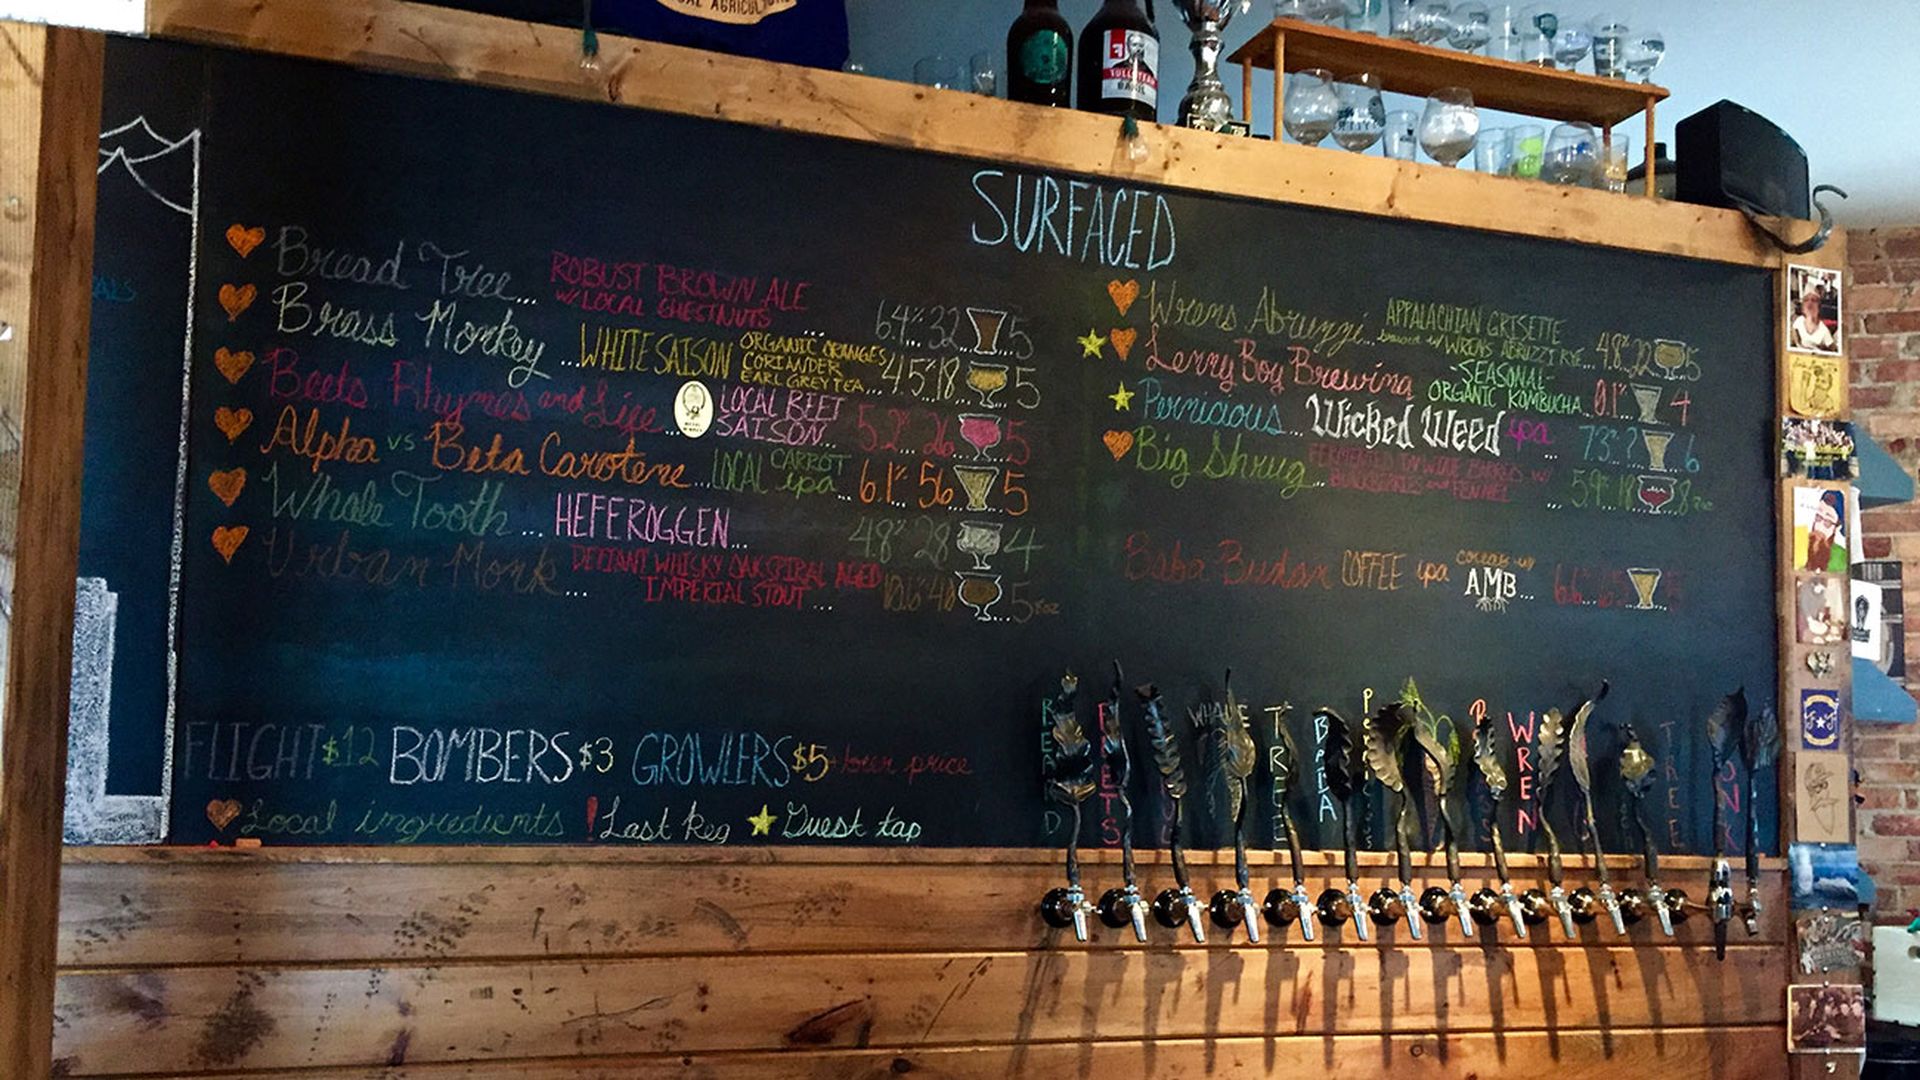 SURFACED
Bread Tree... ROBUST BROWN ALE
W/ LOCAL CHESTNUTS ... 6.4% 32 5
Brass Monkey ...WHITE SAISON ORGANIC ORANGES
CORIANDER
EARL GREY TEA... 4.5% 18 5
Beets, Rhymes and Life... LOCAL BEET
SAISON... 5.2% 26 5
Alpha vs Beta Carotene...LOCAL CARROT
ipa... 6.1% 56 5
Whole Tooth ... HEFEROGGEN... 4.8% 28 4
Urban Monk ... DEFIANT WHISKY OAK SPIRAL AGED
IMPERIAL STOUT ... 10.6% 40 5 8oz
Wrens Abruzzi... APPALACHIAN GRISETTE
brewed w/ WRENS ABRUZZI RYE... 4.8% 22 5
Lenny Boy Brewing -SEASONAL-
ORGANIC KOMBUCHA... 0.1% 4
Pernicious... Wicked Weed ipa 7.3% ? 6
Big Shrug... FERMENTED IN WINE BARRELS W/
BLACKBERRIES and FENNEL ... 5.9% 18 8 7oz
Baba Budan COFFEE ipa collab w/
AMB... 6.6% 65
FLIGHT $12 BOMBERS $3 GROWLERS $5 + beer price
Local ingredients ! Last keg Guest tap
BABA
TREE
WREN